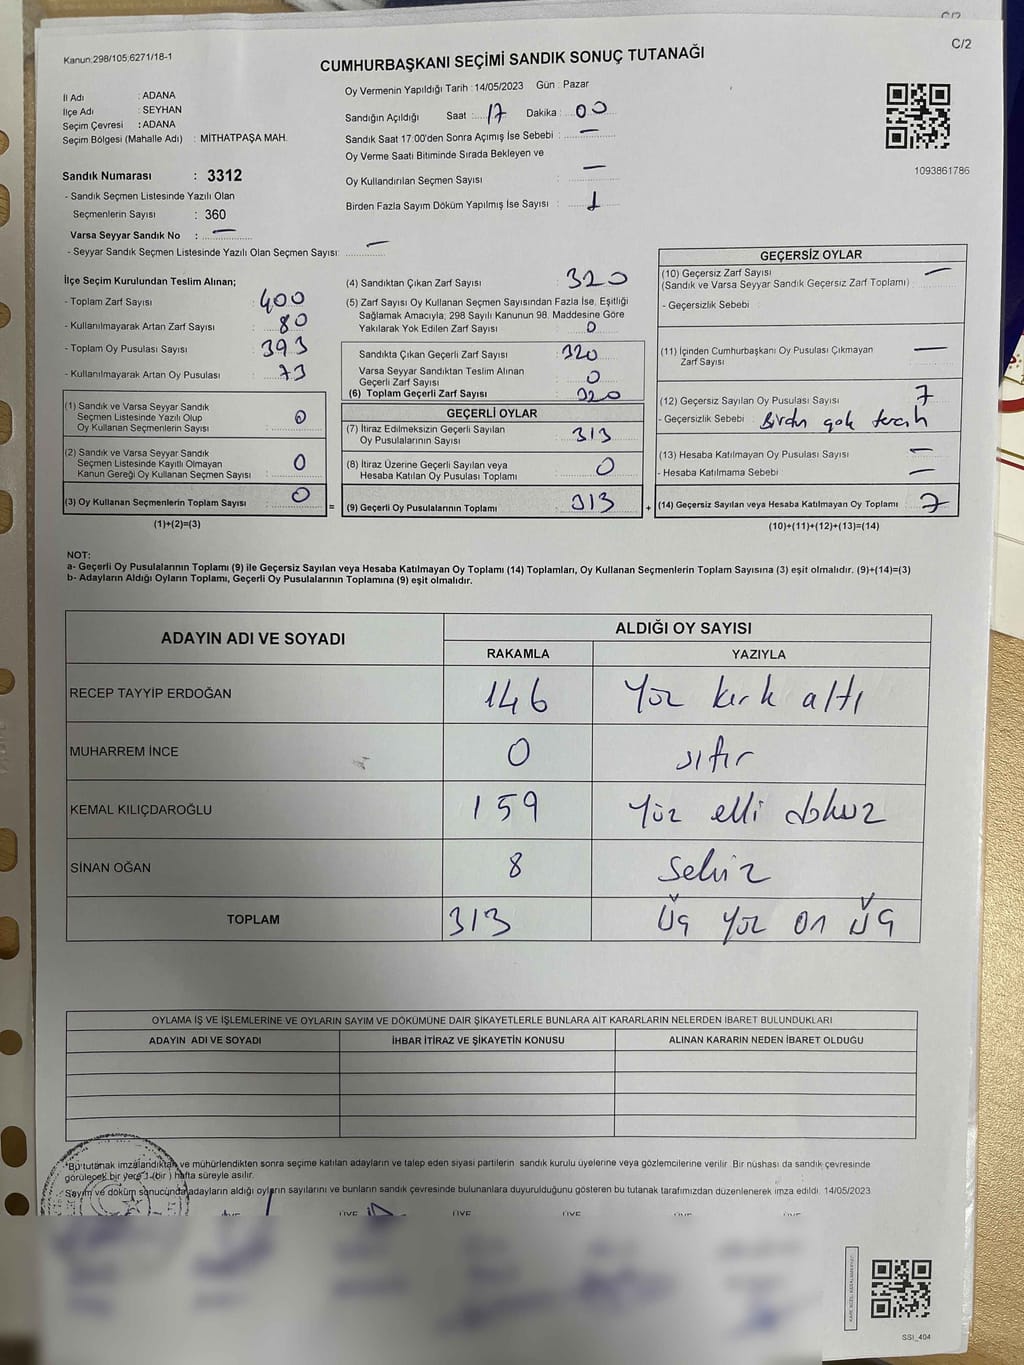 C/2
C/2
Kanun:298/105;6271/18-1
CUMHURBAŞKANI SEÇİMİ SANDIK SONUÇ TUTANAĞI
İl Adı : ADANA
İlçe Adı : SEYHAN
Seçim Çevresi : ADANA
Seçim Bölgesi (Mahalle Adı) : MİTHATPAŞA MAH.
Sandık Numarası : 3312
- Sandık Seçmen Listesinde Yazılı Olan
Seçmenlerin Sayısı : 360
Varsa Seyyar Sandık No : —
- Seyyar Sandık Seçmen Listesinde Yazılı Olan Seçmen Sayısı: —
Oy Vermenin Yapıldığı Tarih : 14/05/2023 Gün : Pazar
Sandığın Açıldığı Saat : 17 Dakika : 00
Sandık Saat 17:00'den Sonra Açımış İse Sebebi : —
Oy Verme Saati Bitiminde Sırada Bekleyen ve
Oy Kullandırılan Seçmen Sayısı : —
Birden Fazla Sayım Döküm Yapılmış İse Sayısı : 1
1093861786
İlçe Seçim Kurulundan Teslim Alınan;
- Toplam Zarf Sayısı : 400
- Kullanılmayarak Artan Zarf Sayısı : 80
- Toplam Oy Pusulası Sayısı : 393
- Kullanılmayarak Artan Oy Pusulası : 73
(1) Sandık ve Varsa Seyyar Sandık
Seçmen Listesinde Yazılı Olup
Oy Kullanan Seçmenlerin Sayısı : 0
(2) Sandık ve Varsa Seyyar Sandık
Seçmen Listesinde Kayıtlı Olmayan
Kanun Gereği Oy Kullanan Seçmen Sayısı : 0
(3) Oy Kullanan Seçmenlerin Toplam Sayısı : 0
(1)+(2)=(3)
(4) Sandıktan Çıkan Zarf Sayısı : 320
(5) Zarf Sayısı Oy Kullanan Seçmen Sayısından Fazla İse, Eşitliği
Sağlamak Amacıyla; 298 Sayılı Kanunun 98. Maddesine Göre
Yakılarak Yok Edilen Zarf Sayısı : 0
Sandıkta Çıkan Geçerli Zarf Sayısı : 320
Varsa Seyyar Sandıktan Teslim Alınan
Geçerli Zarf Sayısı : 0
(6) Toplam Geçerli Zarf Sayısı : 320
GEÇERLİ OYLAR
(7) İtiraz Edilmeksizin Geçerli Sayılan
Oy Pusulalarının Sayısı : 313
(8) İtiraz Üzerine Geçerli Sayılan veya
Hesaba Katılan Oy Pusulası Toplamı : 0
= (9) Geçerli Oy Pusulalarının Toplamı : 313
GEÇERSİZ OYLAR
(10) Geçersiz Zarf Sayısı : —
(Sandık ve Varsa Seyyar Sandık Geçersiz Zarf Toplamı)
- Geçersizlik Sebebi :
(11) İçinden Cumhurbaşkanı Oy Pusulası Çıkmayan
Zarf Sayısı : —
(12) Geçersiz Sayılan Oy Pusulası Sayısı : 7
- Geçersizlik Sebebi : Birden çok tercih
(13) Hesaba Katılmayan Oy Pusulası Sayısı : —
- Hesaba Katılmama Sebebi : —
+ (14) Geçersiz Sayılan veya Hesaba Katılmayan Oy Toplamı : 7
(10)+(11)+(12)+(13)=(14)
NOT:
a- Geçerli Oy Pusulalarının Toplamı (9) ile Geçersiz Sayılan veya Hesaba Katılmayan Oy Toplamı (14) Toplamları, Oy Kullanan Seçmenlerin Toplam Sayısına (3) eşit olmalıdır. (9)+(14)=(3)
b- Adayların Aldığı Oyların Toplamı, Geçerli Oy Pusulalarının Toplamına (9) eşit olmalıdır.
ADAYIN ADI VE SOYADI ALDIĞI OY SAYISI
RAKAMLA YAZIYLA
RECEP TAYYİP ERDOĞAN 146 Yüz kırk altı
MUHARREM İNCE 0 sıfır
KEMAL KILIÇDAROĞLU 159 Yüz elli dokuz
SİNAN OĞAN 8 Sekiz
TOPLAM 313 Üç yüz on üç
OYLAMA İŞ VE İŞLEMLERİNE VE OYLARIN SAYIM VE DÖKÜMÜNE DAİR ŞİKAYETLERLE BUNLARA AİT KARARLARIN NELERDEN İBARET BULUNDUKLARI
ADAYIN ADI VE SOYADI İHBAR İTİRAZ VE ŞİKAYETİN KONUSU ALINAN KARARIN NEDEN İBARET OLDUĞU
*Bu tutanak imzalandıktan ve mühürlendikten sonra seçime katılan adayların ve talep eden siyasi partilerin sandık kurulu üyelerine veya gözlemcilerine verilir. Bir nüshası da sandık çevresinde
görülecek bir yere 1 (bir) hafta süreyle asılır.
- Sayım ve döküm sonucunda adayların aldığı oyların sayılarını ve bunların sandık çevresinde bulunanlara duyurulduğunu gösteren bu tutanak tarafımızdan düzenlenerek imza edildi. 14/05/2023
ÜYE ÜYE ÜYE ÜYE ÜYE ÜYE
SSI_404